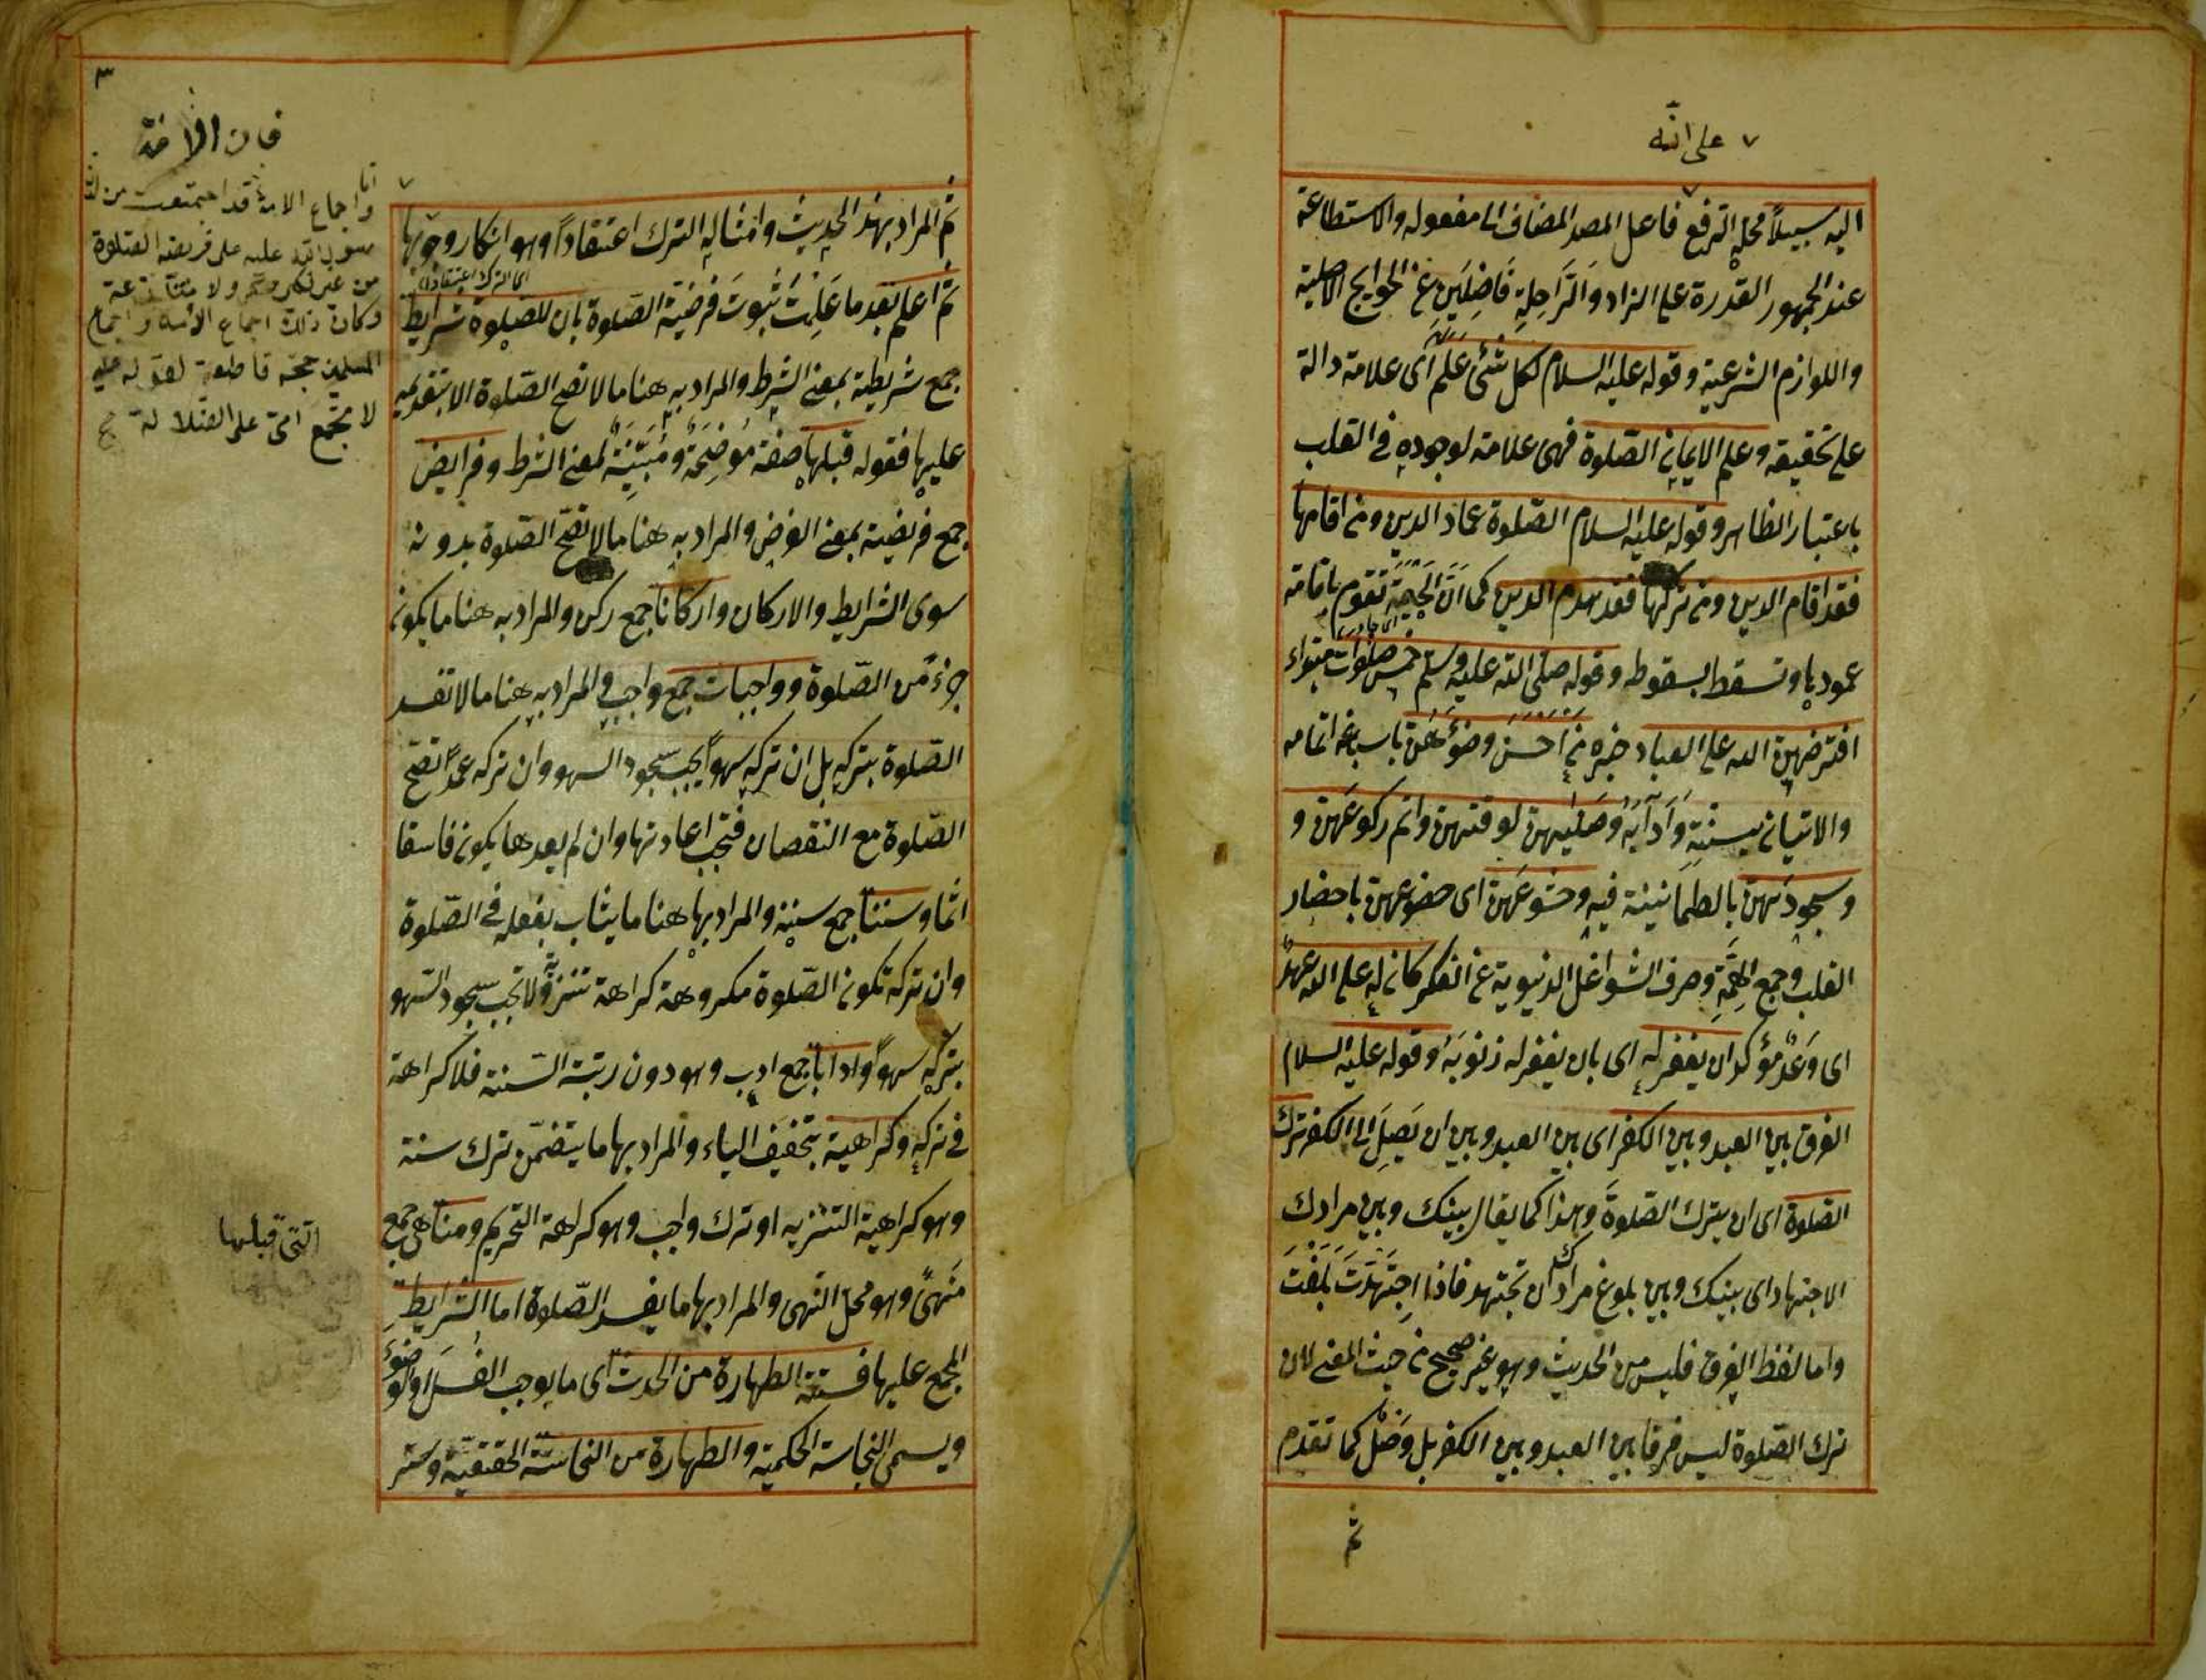 على انه
اليه سبيلاً محله الرفع فاعل المصدر المضاف الى مفعوله والاستطاعة
عند الجمهور القدرة على الزاد والرَّاحِلةِ فَاضِلَينِ عن الحوايج الاصلية
واللوازم الشرعية وقوله عليه السلام لكل شئ عَلَمٌ اى علامة دالة
على تحقيقه وعلم الايمان الصّلوة فهى علامة لوجوده في القلب
باعتبار الظاهر وقوله عليه السلام الصّلوة عماد الدين ومن اقامها
فقد اقام الدين ومن تركها فقد هدم الدين كما انّ الخَيمة تقوم باقامة
عمودها وتسقط بسقوطه وقوله صلّى الله عليه وسلّم خمس صلوات مبتداء
افترضهنّ الله على العباد خبره من اَحْسَنَ وضوءَهُنّ باسباغه اتمامه
والاتيان بسننِهِ وَآدَابِه وصَلّيهنّ لوقتهنّ واتم ركوعَهنّ و
وسجودَهنّ بالطمانينة فيه وخشوعَهنّ اى خضوعهنّ باحضار
القلب وجمع الهِمَّةِ وصرف الشواغل الدنيوية عن الفكر كان له على الله عهدٌ
اى وَعْدٌ مؤكد ان يغفر له اى بان يغفر له ذنوبَهُ وقوله عليه السلام
الفرق بين العبد وبين الكفر اى بين العبد وبين ان يَصِلَ الى الكفر ترك
الصّلوة اى ان يترك الصّلوةَ وهذا كما يقال بينك وبين مرادك
الاجتهاد اى بينك وبين بلوغ مرادك ان تجتهد فاذا اِجتَهَدتَ بَلَغْتَ
واما لفظ الفرق فليس من الحديث وهو غير صحيح من حيث المعنى لان
ترك الصّلوة ليس فرقا بين العبد وبين الكفر بل وَصْلٌ كما تقدم
ثم
٣
ثم المراد بهذا الحديث وامثاله الترك اعتقاداً وهو انكار وجوبها
اى الترك اعتقادا
ثم اعلم بعد ما عَلِمْتَ ثبوتَ فرضيّة الصّلوة بان للصلوة شرايط
جمع شريطة بمعنى الشرط والمراد به هنا ما لا تصح الصّلوة الا بتقديمه
عليها فقوله قبلها صفة مُوَضِّحَةٌ ومُبَيِّنَةٌ لمعنى الشرط وفرايض
جمع فريضة بمعنى الفرض والمراد به هنا ما لا تصحّ الصّلوة بدونه
سوى الشرايط والاركان واركاناً جمع ركن والمراد به هنا ما يكون
جزءً من الصّلوة وواجبات جمع واجب والمراد به هنا ما لا تفسد
الصّلوة بتركه بل ان تركه سهواً يجب سجود السهو وان تركه عمداً تصحّ
الصّلوة مع النقصان فتجب اعادتها وان لم يعدها يكون فاسقا
اثما وسننا جمع سنة والمراد بها هنا ما يثاب بفعله في الصّلوة
وان تركه تكون الصّلوة مكروهة كراهة تنزه ولا تجب سجود السّهو
بتركه سهواً وادابا جمع ادب وهو دون رتبة السّنة فلا كراهة
في تركه وكراهية بتخفيف الياء والمراد بها ما يتضمّن ترك سنة
وهو كراهية التنزيه او ترك واجب وهو كراهة التحريم ومناهى جمع
مَنهىً وهو محلّ النهى والمراد بها ما يفسد الصّلوة اما الشرايط
المجمع عليها فستة الطهارة من الحدث اى ما يوجب الغُسلَ او الوضوءَ
ويسمى النجاسة الحكمية والطهارة من النجاسة الحقيقية وستر
واجماع الامة قد اجتمعت من لدن
رسول الله عليه على فريضة الصّلوة
من غير نكير منكر ولا منازعة
وكان ذلك اجماع الامة واجماع
المسلمين حجّة قاطعة لقوله عليه
لا تجتمع امتى على الضّلالة
التى قبلها